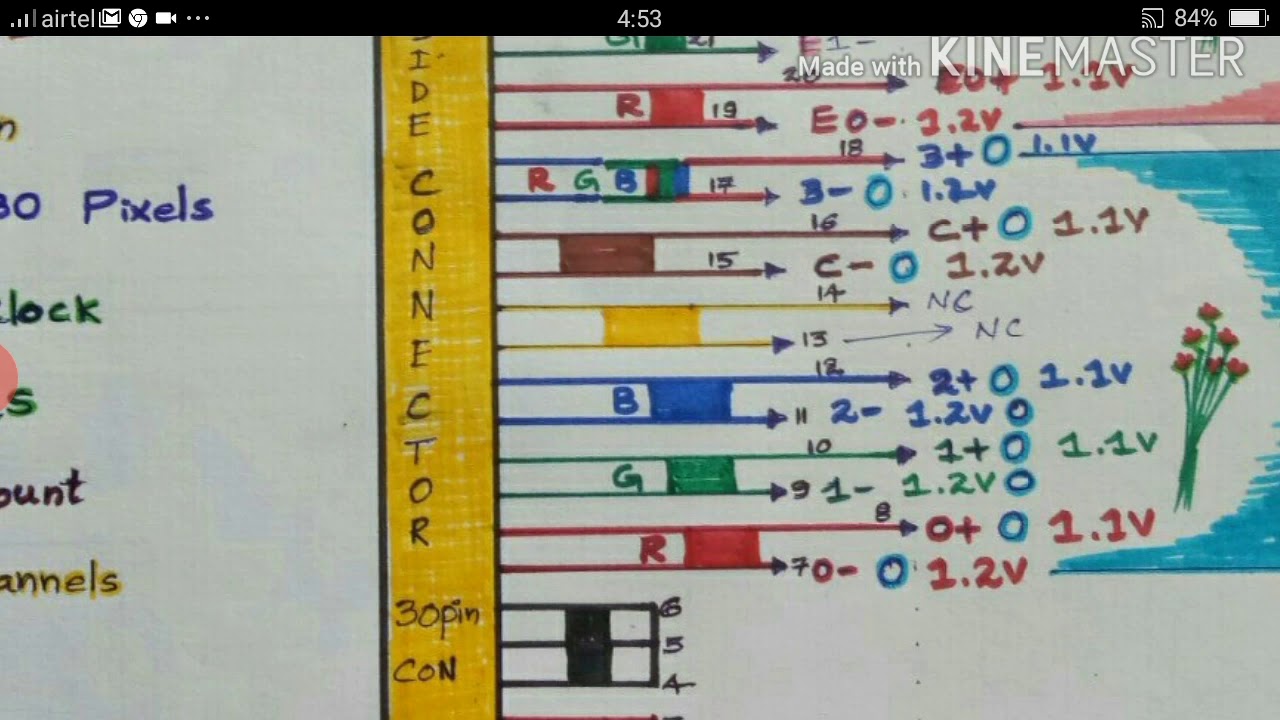 airtel 4:53 84%
Made with KINEMASTER
21 E1-
20 E0+ 1.1V
R 19 E0- 1.2V
18 3+ O 1.1V
R G B 17 3- O 1.2V
16 C+ O 1.1V
15 C- O 1.2V
14 NC
13 NC
12 2+ O 1.1V
B 11 2- 1.2V O
10 1+ O 1.1V
G 9 1- 1.2V O
8 0+ O 1.1V
R 7 0- O 1.2V
6
5
4
IDE
CONNECTOR
30pin
CON
30 Pixels
lock
s
ount
annels